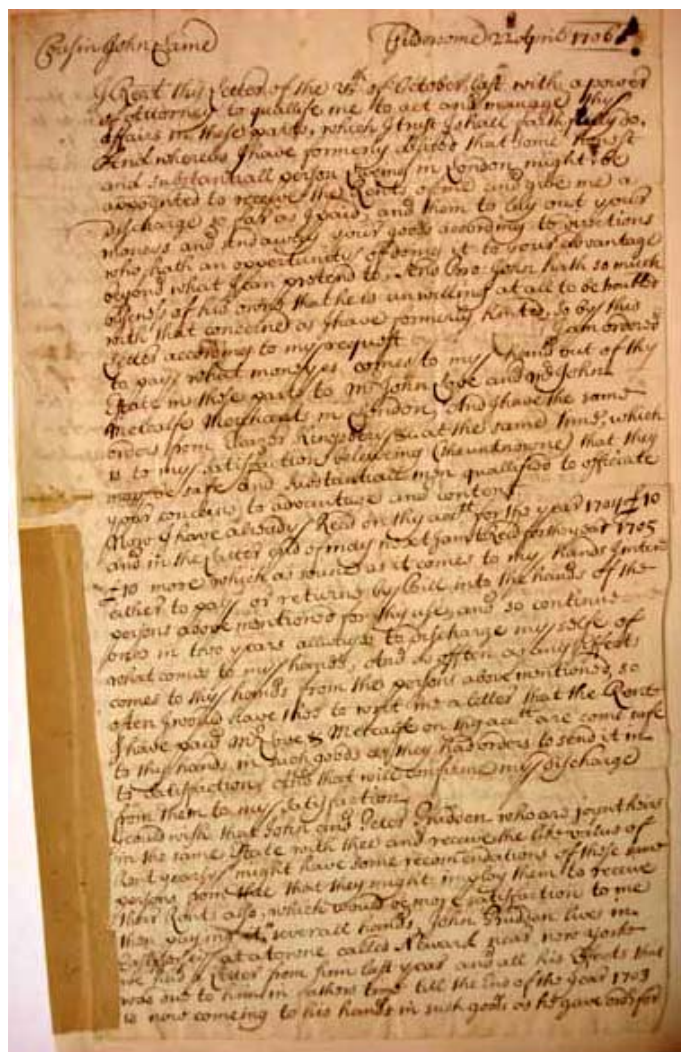 Cousin John Lame Gildersome 22 April 1706
I Recd this Letter of the 21th of October last with a power
of Attorney to quallife me to act and manage thy
affairs in these parts, which I trust I shall faithfully do,
And whereas I have formerly desired that some honest
and substantiall person Liveing in London might be
appointed to receive the Rents of me and give me a
discharge so far as I paid, and them to lay out your
moneys and send away your goods according to directions
who hath an opportunity of doing it to your advantage
beyond what I can pretend to. And Bro: John hath so much
bisness of his owne that he is unwilling at all to be troubled
with that concerne as I have formerly hinted, so by this
Letter according to my request I am ordered
to pay what money comes to my hand out of thy
State in these parts to Mr John Love and Mr John
Metcalfe Merchants in London, And I have the same
orders from at the same time, which
is to my satisfaction beleiveing (tho unknowne) that they
may be safe and substantiall men quallified to officiate
your concerns to advantage and content.
Now I have already Recd on thy acctt for the year 1704 £10
and in the latter end of may next I am to Recd for the year 1705
£10 more which as soone as it comes to my hands I intend
either to pay or returne by Bill into the hands of the
persons above mentioned for thy use, and so continue
once in two years allways to discharge my selfe of
what comes to my hands, And as often as any effects
comes to thy hands from the persons above mentioned, so
often I would have thee to writ me a letter that the Rents
I have paid Mr Love & Metcalfe on thy acctt are come safe
to thy hands in such goods as they had orders to send it in
to satisfaction, and that will confirme my discharge
from them to my satisfaction
I could wish that John and Peter Prudden who are joynt heirs
in the same State with thee and receive the like value of
Rent yearly might have some recomendations of these same
persons from thee that they might imploy them to receive
their Rents also, which would be more satisfaction to me
then paying it to severall hands, John Prudden live in
at a towne called Newark near new yorke
we had a Letter from him last year and all his effects that
was due to him in fathers time till the End of the year 1703
is now coming to his hands in such goods as he gave order for